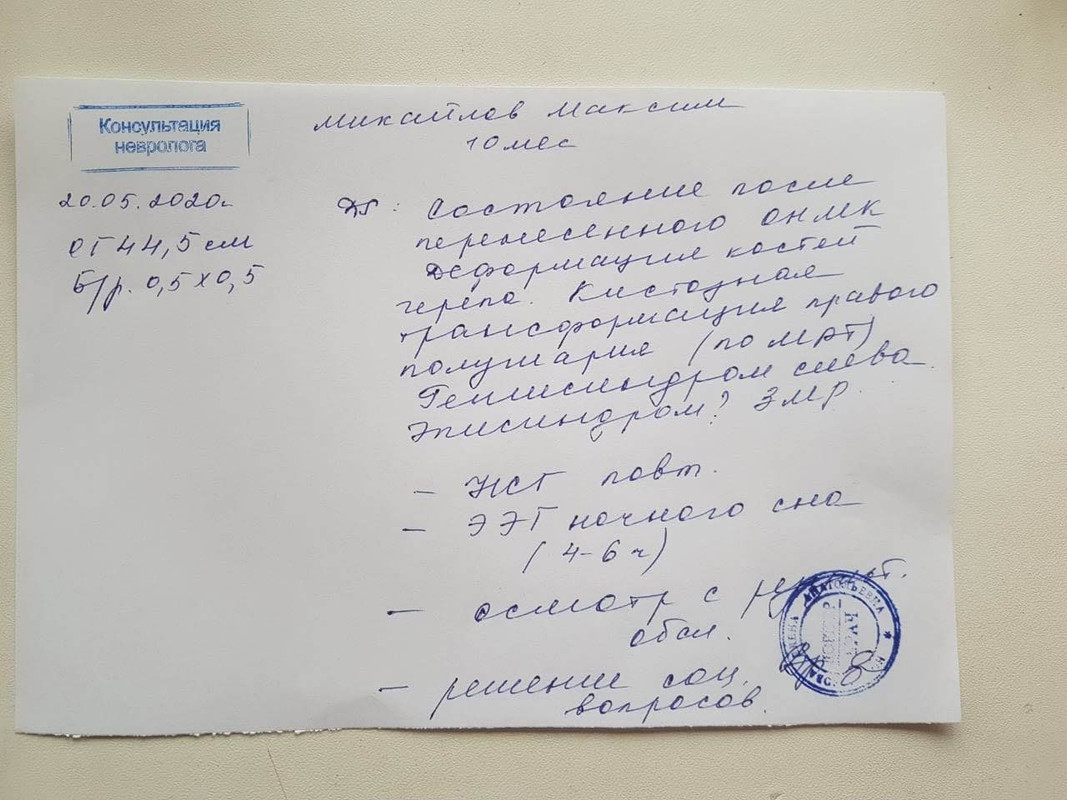 Консультация
невролога
Михайлов Максим
10 мес
20.05.2020г
ОГ 44,5 см
б/р. 0,5 х 0,5
DS: Состояние после
перенесенного ОНМК
Деформация костей
черепа. Кистозная
трансформация правого
полушария (по МРТ)
Гемисиндром слева.
Эписиндром? ЗМР.
- НСГ повт.
- ЭЭГ ночного сна
(4-6 ч)
- осмотр с результ.
обсл.
- решение соц.
вопросов.
АНАТОЛЬЕВНА
ВРАЧ